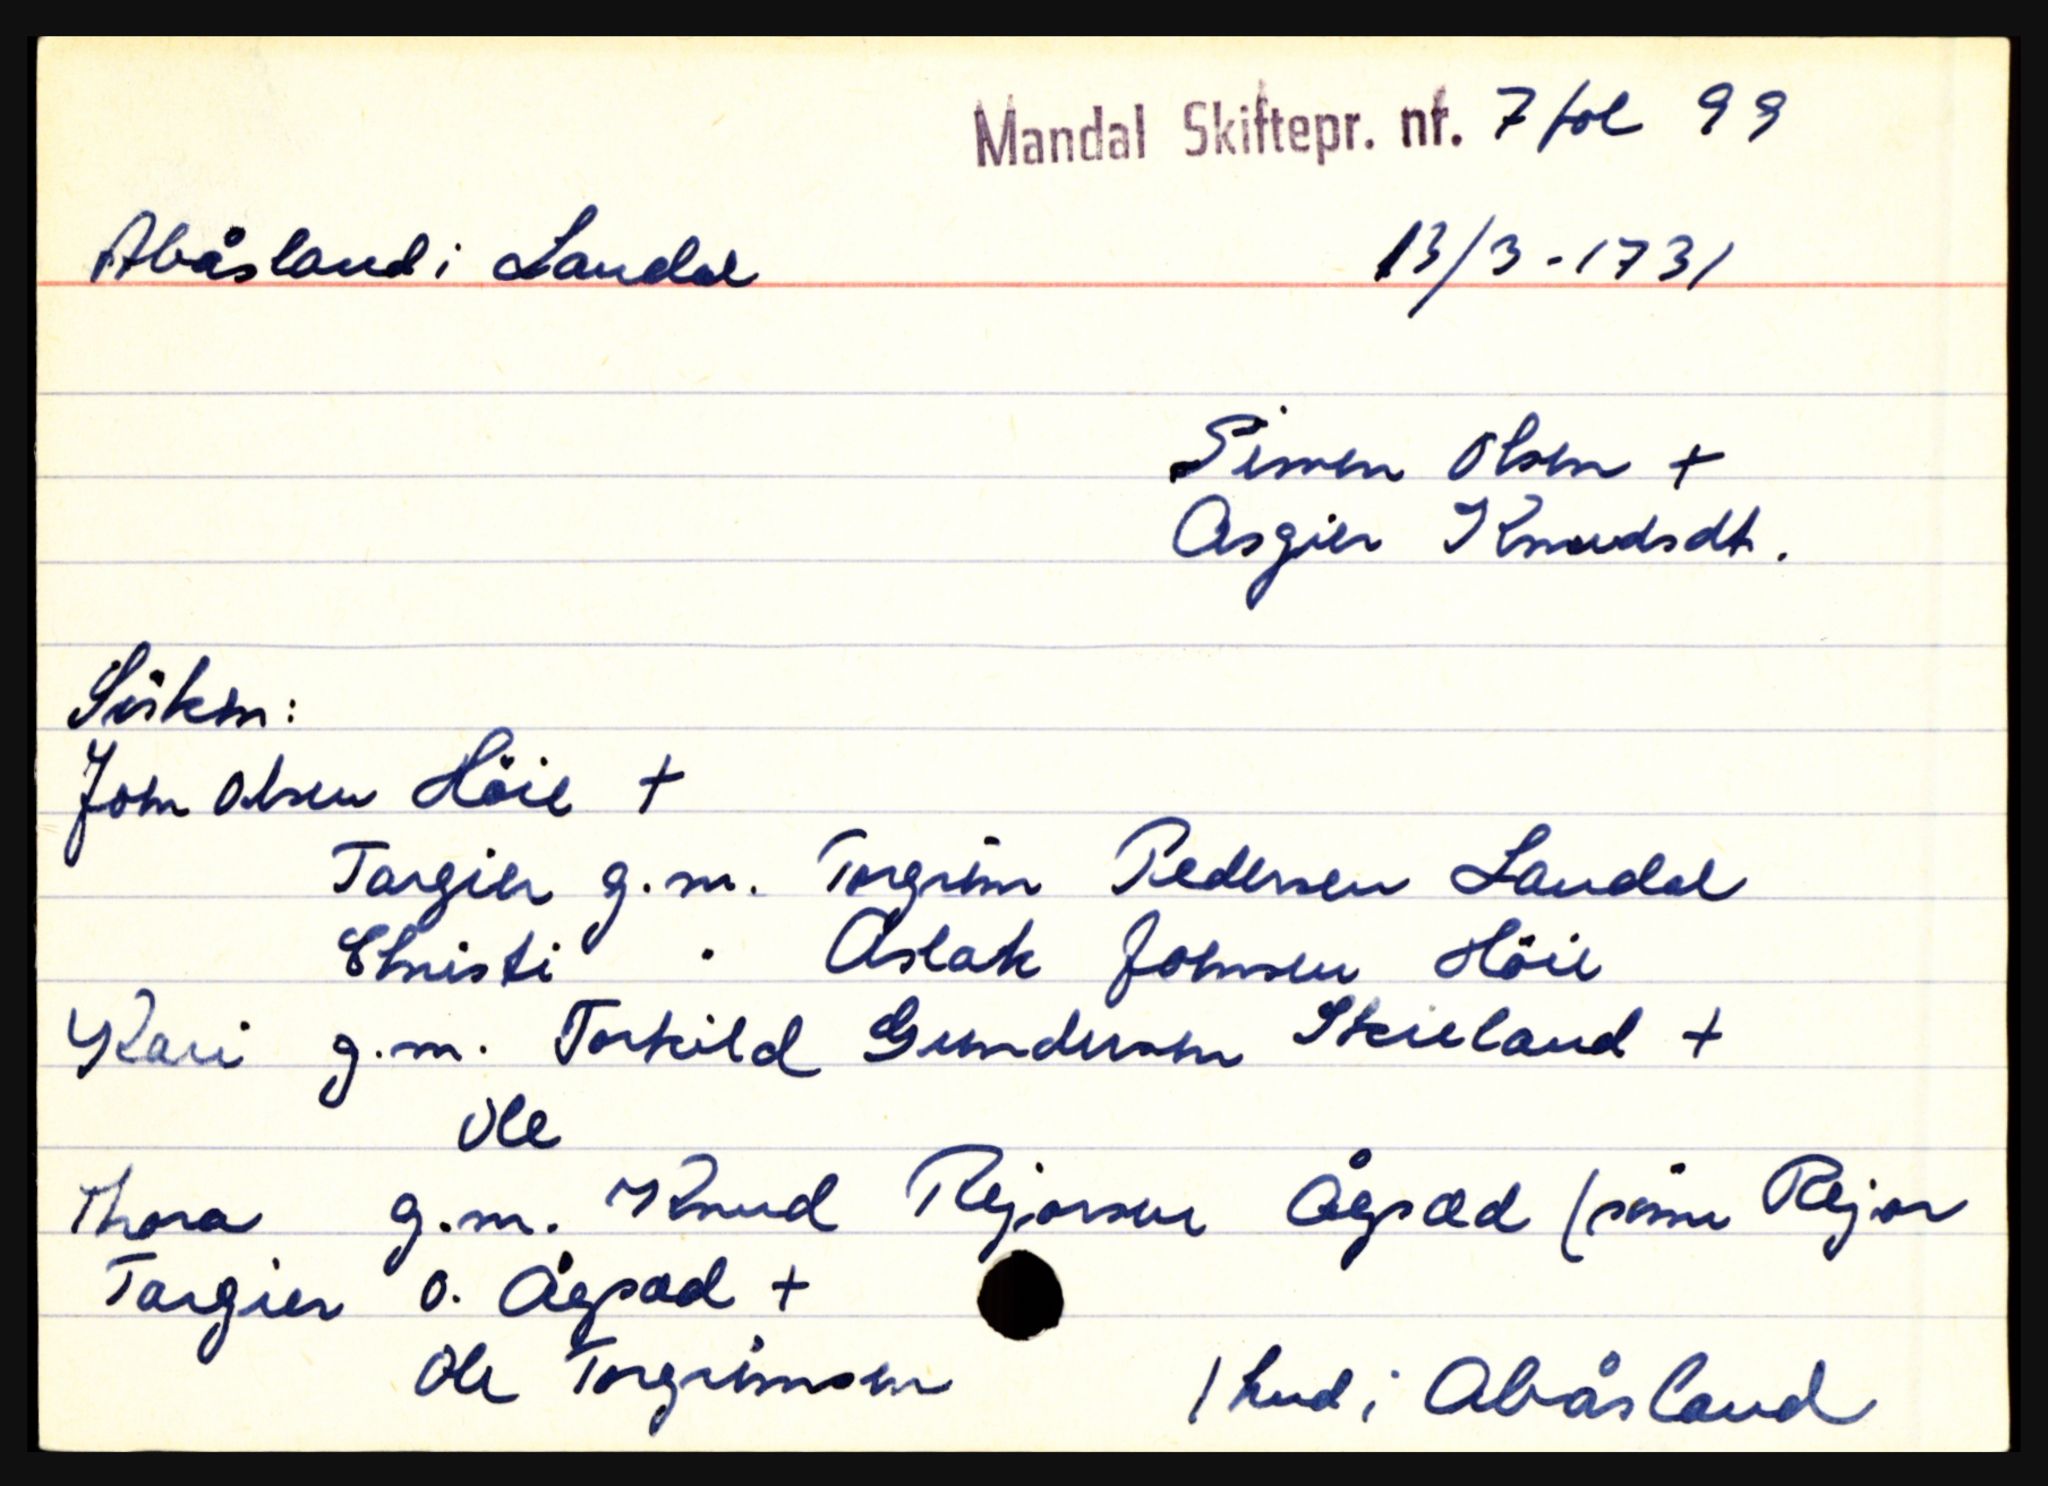 Mandal Skiftepr. nr. 7 fol 99
Abåsland i Laudal 13/3-1731
Simen Olsen +
Asgier Knudsdt.
Søsken:
John Olsen Höie +
Targier g.m. Torgrim Pedersen Laudal
Christi " Aslak Johnsen Höie
Kari g.m. Torkild Gundersen Skieland +
Ole
Thora g.m. Knud Rejorsen Ågsæd (sønn Rejor
Targier O. Ågsæd +
Ole Torgrimsen 1 hud i Abåsland